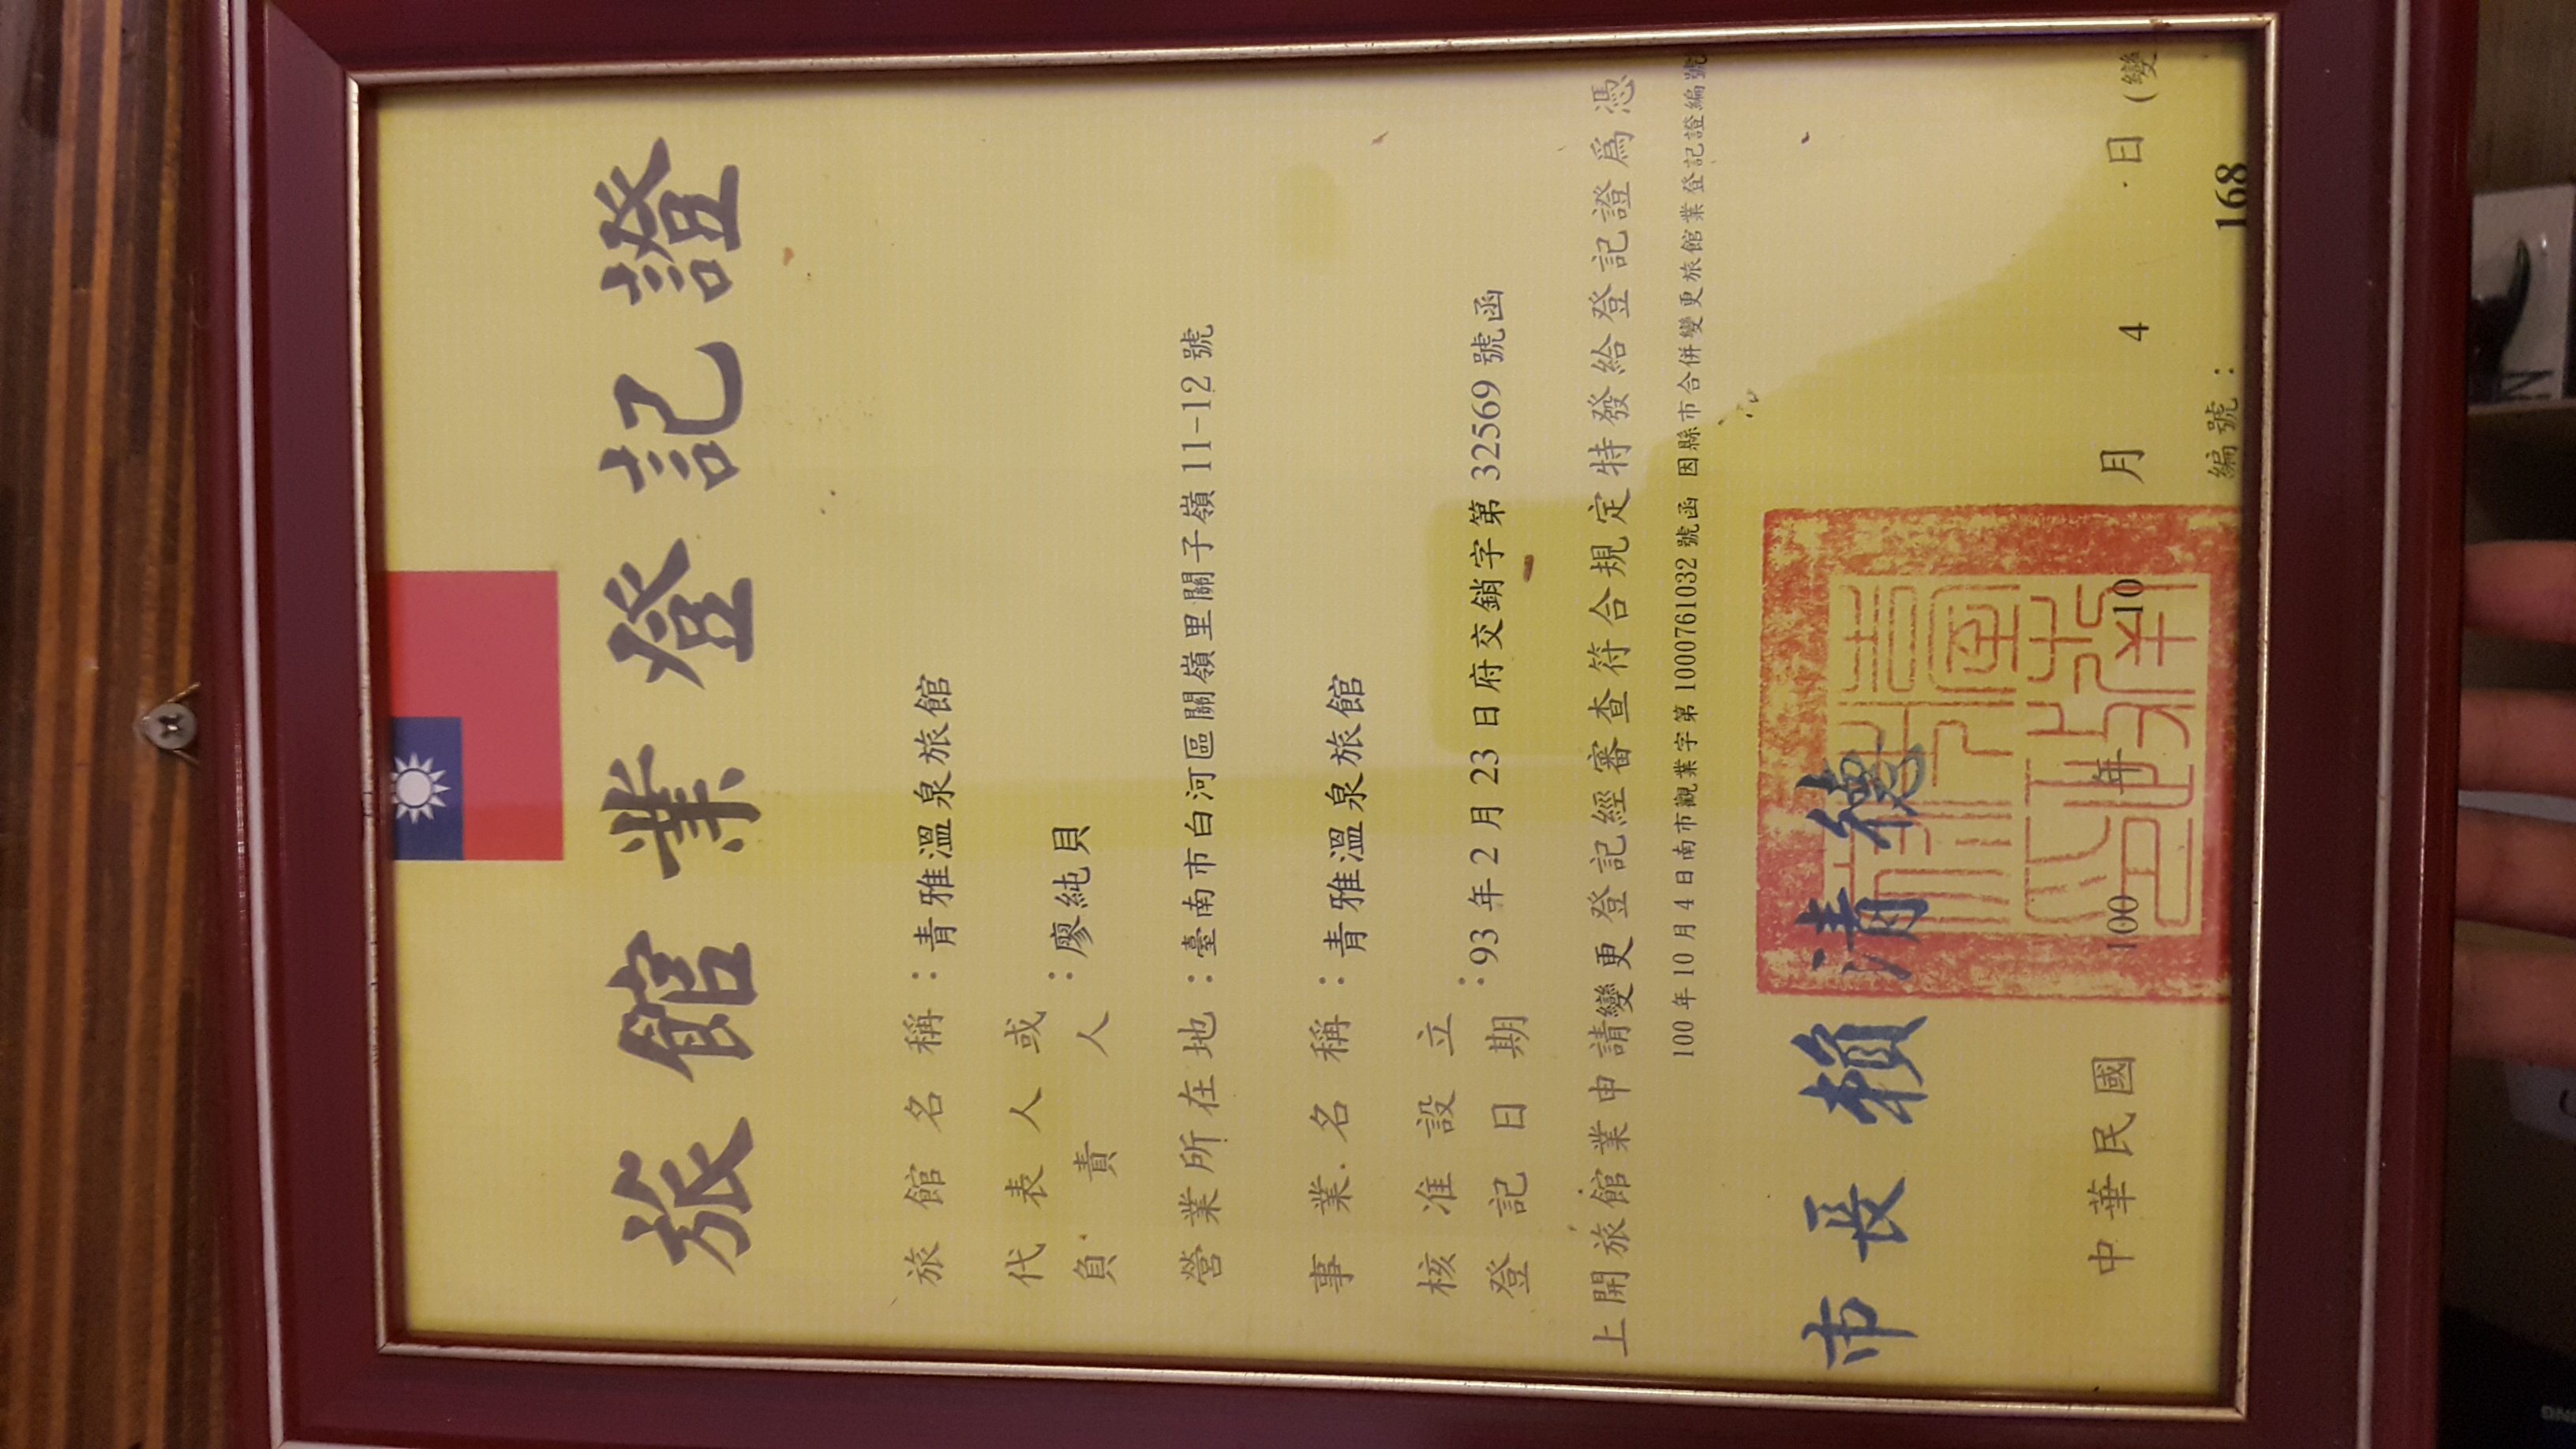 旅館業登記證
旅館名稱：青雅溫泉旅館
代表人或
負責人：廖純貝
營業所在地：臺南市白河區關嶺里關子嶺11-12號
事業名稱：青雅溫泉旅館
核准設立
登記日期：93年2月23日府交銷字第32569號函
上開旅館業申請變更登記經審查符合規定特發給登記證爲憑
100年10月4日南市觀業字第1000761032號函 因縣市合併變更旅館業登記證編號
市長 賴清德
中華民國 100 年 10 月 4 日 (變
編號： 168